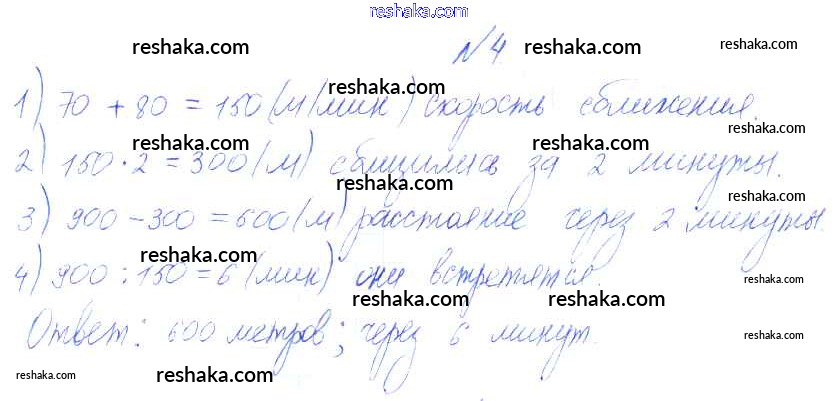 reshaka.com
reshaka.com reshaka.com
N4
reshaka.com
1) 70 + 80 = 150 (м/мин) скорость сближения.
reshaka.com
reshaka.com reshaka.com
2) 150 · 2 = 300 (м) сблизились за 2 минуты.
reshaka.com reshaka.com
3) 900 - 300 = 600 (м) расстояние через 2 минуты.
reshaka.com reshaka.com
4) 900 : 150 = 6 (мин) они встретятся.
reshaka.com reshaka.com
Ответ: 600 метров; через 6 минут.
reshaka.com reshaka.com reshaka.com reshaka.com